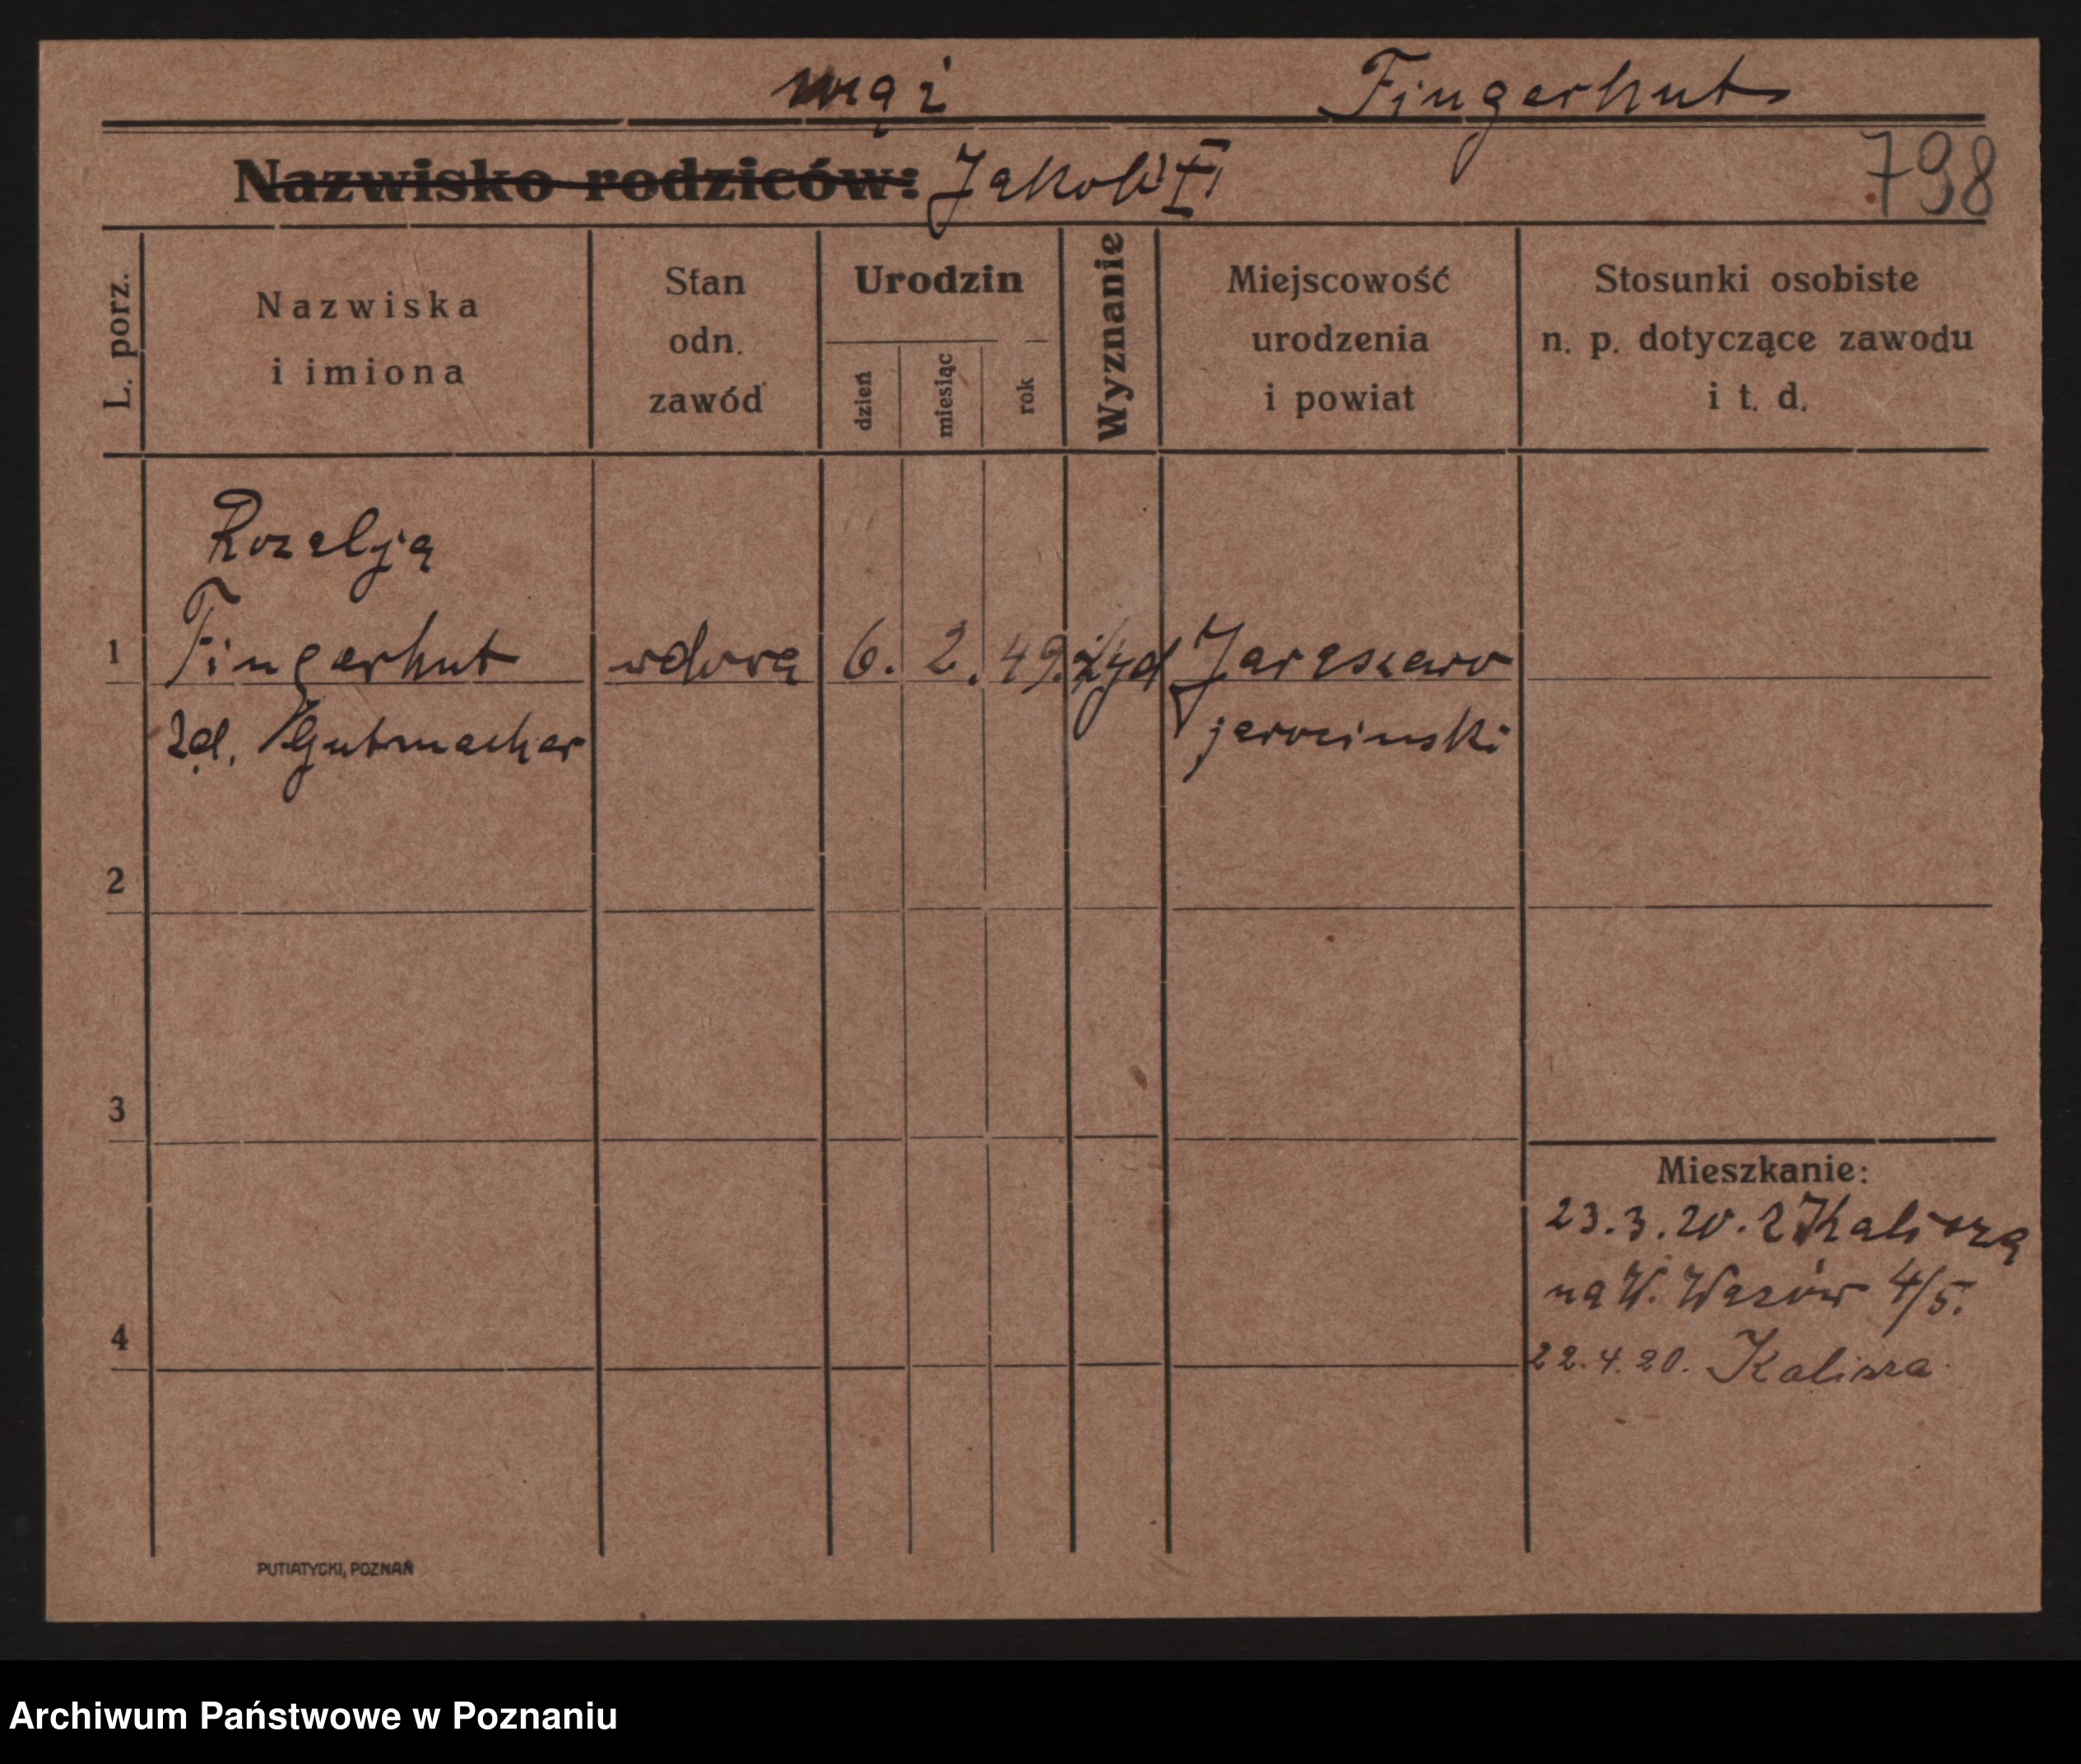 mąż Fingerhut
Nazwisko rodziców: Jakób †
798
L. porz.
Nazwiska
i imiona
Stan
odn.
zawód
Urodzin
dzień
miesiąc
rok
Wyznanie
Miejscowość
urodzenia
i powiat
Stosunki osobiste
n. p. dotyczące zawodu
i t. d.
Rozalja
1 Fingerhut wdowa 6. 2. 49. żyd Jaraszewo
zd. Gutmacher jarocinski
2
3
Mieszkanie:
23.3.20. z Kalisza
na W. Wazów 4/5.
4
22.4.20. Kalisza
PUTIATYCKI, POZNAŃ
Archiwum Państwowe w Poznaniu